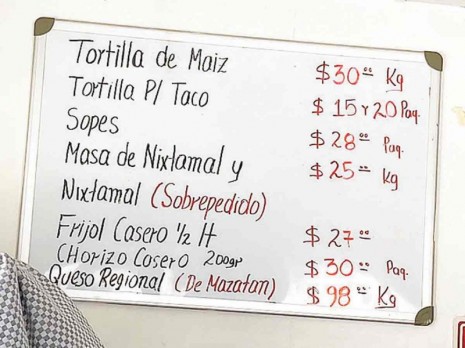 Tortilla de Maiz $30.⁰⁰ Kg
Tortilla P/ Taco $15 Y 20 Paq.
Sopes $28.⁰⁰ Paq.
Masa de Nixtamal y $25.⁰⁰ Kg
Nixtamal (Sobrepedido)
Frijol Casero ½ lt $27.⁰⁰
CHorizo Casero 200gr $30.⁰⁰ Paq.
Queso Regional (De Mazatan) $98.⁰⁰ Kg